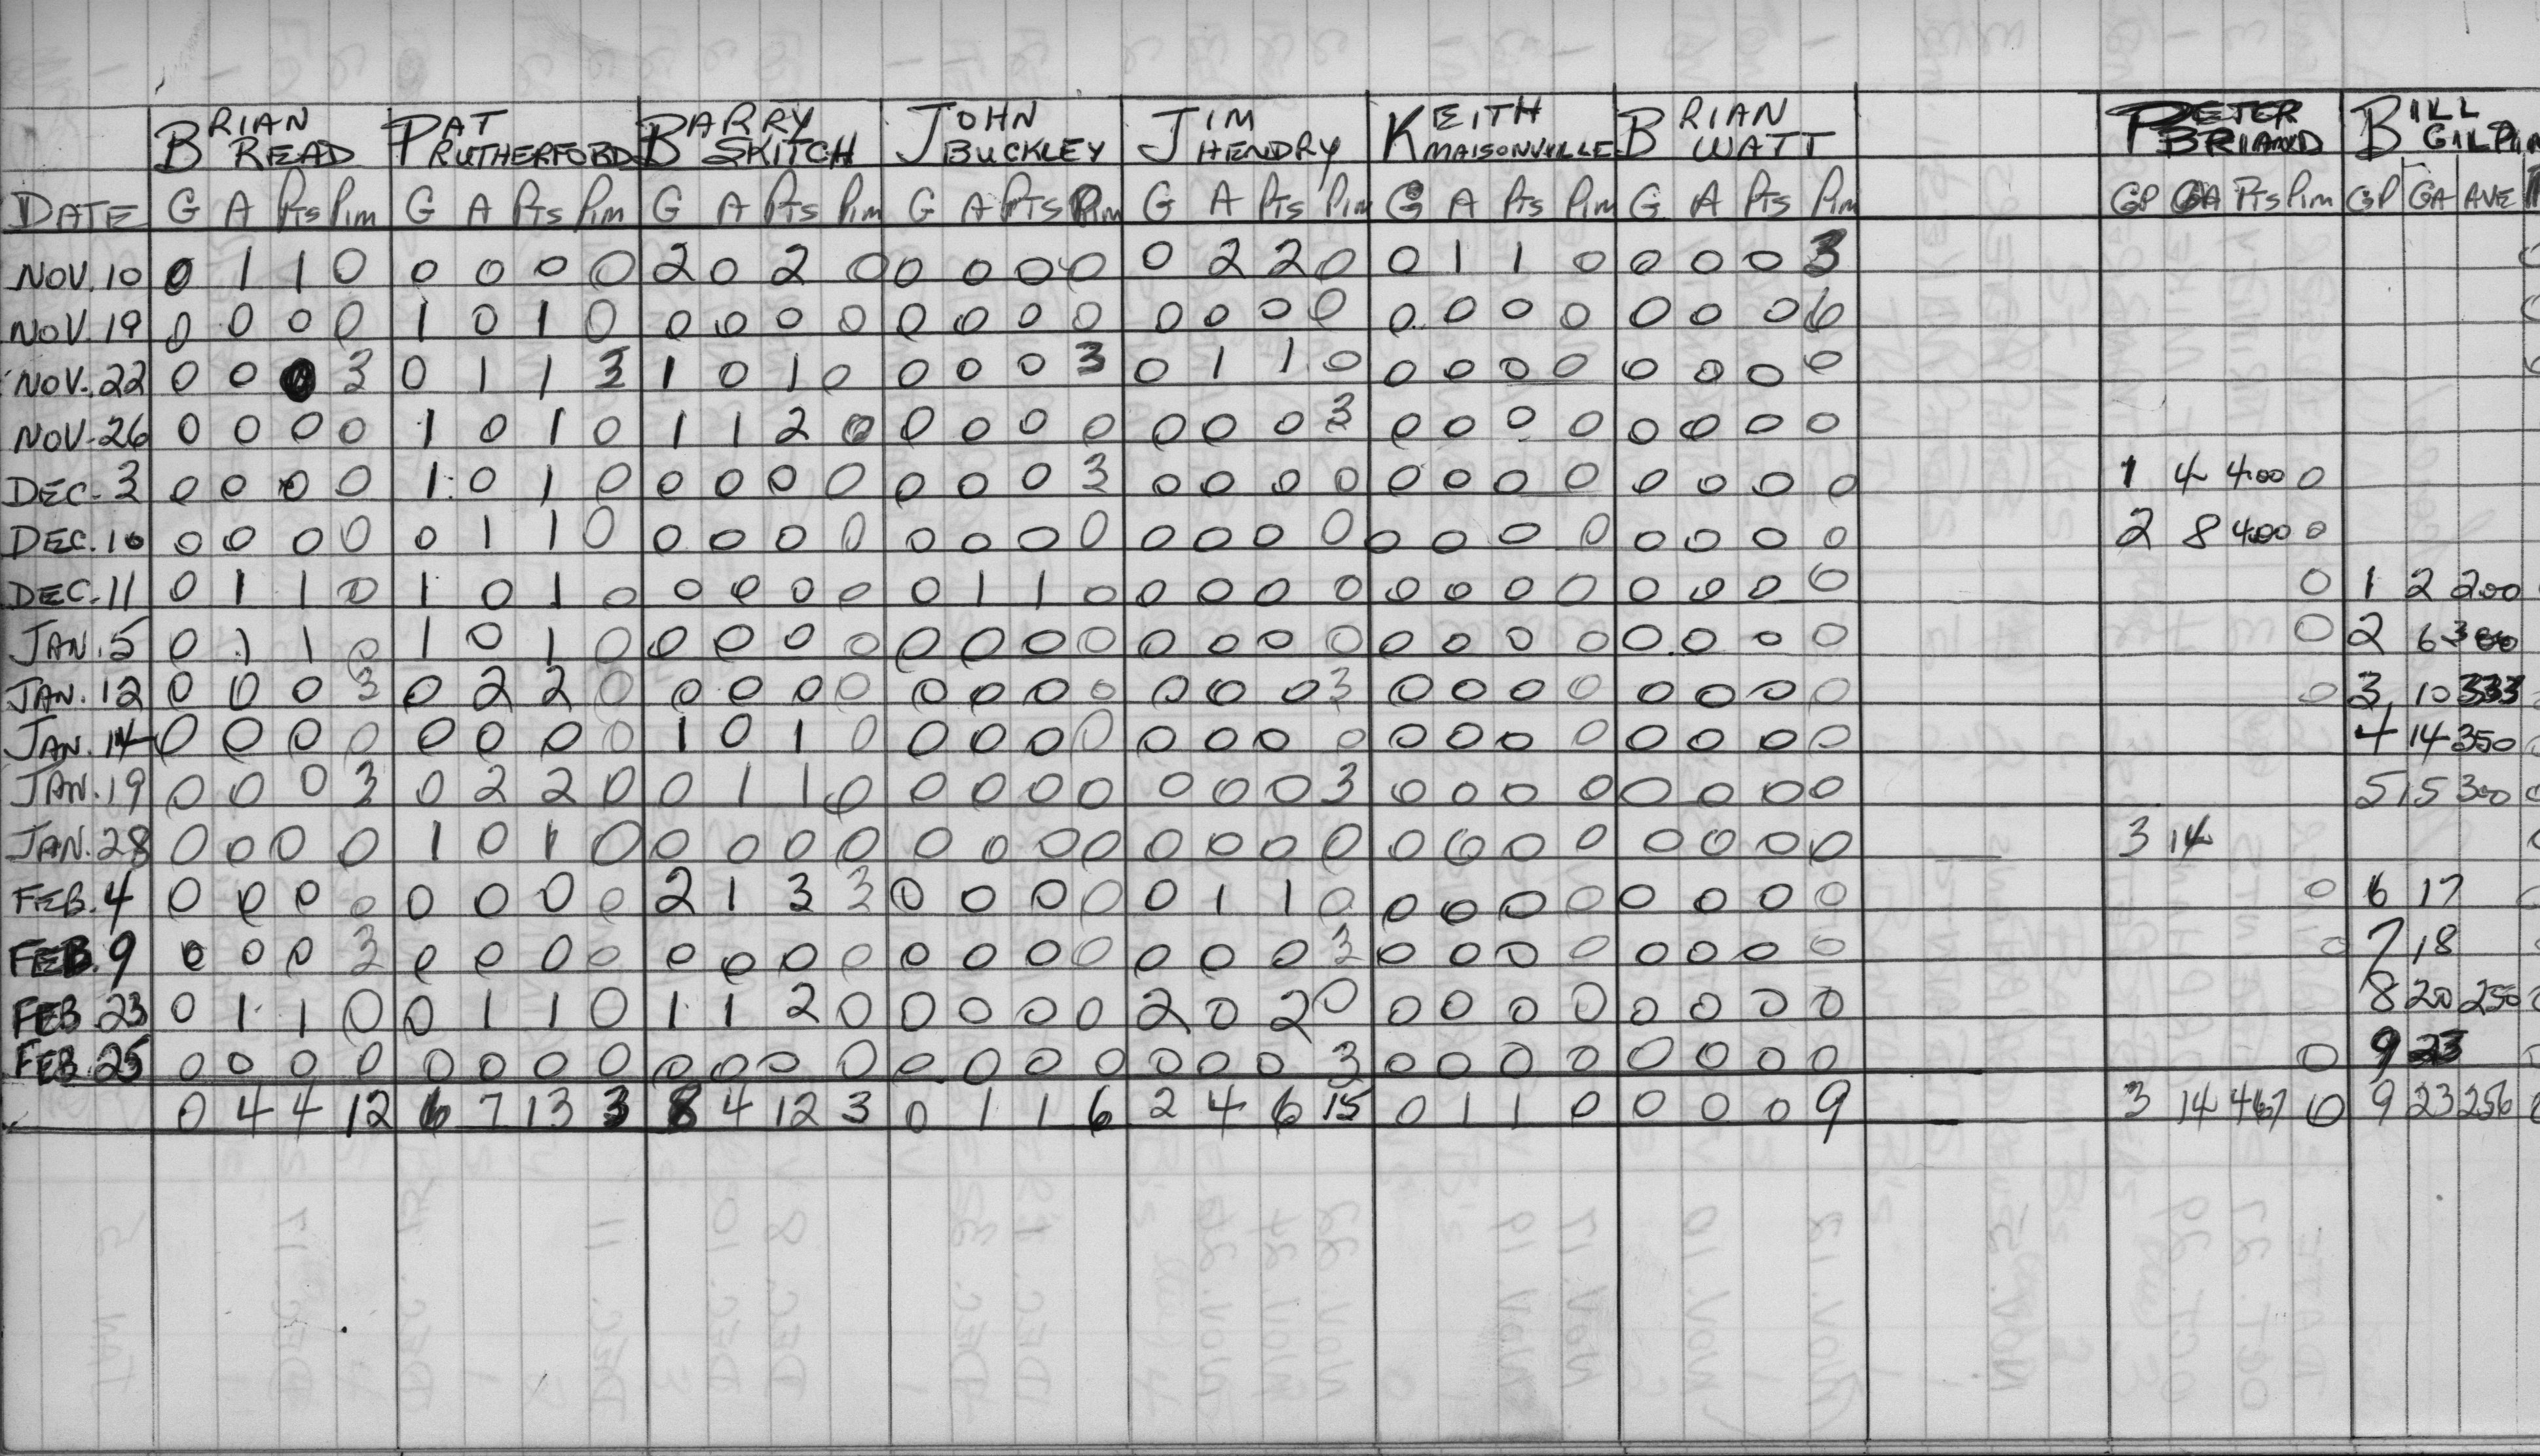 BRIAN READ PAT RUTHERFORD BARRY SKITCH JOHN BUCKLEY JIM HENDRY KEITH MAISONVILLE BRIAN WATT PETER BRIAND BILL GILPIN
DATE G A Pts Pim G A Pts Pim G A Pts Pim G A Pts Pim G A Pts Pim G A Pts Pim G A Pts Pim GP GA Pts Pim GP GA AVE
NOV. 10 0 1 1 0 0 0 0 0 2 0 2 0 0 0 0 0 0 2 2 0 0 1 1 0 0 0 0 3
NOV. 19 0 0 0 0 1 0 1 0 0 0 0 0 0 0 0 0 0 0 0 0 0 0 0 0 0 0 0 6
NOV. 22 0 0 0 3 0 1 1 3 1 0 1 0 0 0 0 3 0 1 1 0 0 0 0 0 0 0 0 0
NOV. 26 0 0 0 0 1 0 1 0 1 1 2 0 0 0 0 0 0 0 0 3 0 0 0 0 0 0 0 0
DEC. 3 0 0 0 0 1 0 1 0 0 0 0 0 0 0 0 3 0 0 0 0 0 0 0 0 0 0 0 0 1 4 4.00 0
DEC. 10 0 0 0 0 0 1 1 0 0 0 0 0 0 0 0 0 0 0 0 0 0 0 0 0 0 0 0 0 2 8 4.00 0
DEC. 11 0 1 1 0 1 0 1 0 0 0 0 0 0 1 1 0 0 0 0 0 0 0 0 0 0 0 0 0 0 1 2 200
JAN. 5 0 1 1 0 1 0 1 0 0 0 0 0 0 0 0 0 0 0 0 0 0 0 0 0 0 0 0 0 0 2 6 300
JAN. 12 0 0 0 3 0 2 2 0 0 0 0 0 0 0 0 0 0 0 0 3 0 0 0 0 0 0 0 0 0 3 10 333
JAN. 14 0 0 0 0 0 0 0 0 1 0 1 0 0 0 0 0 0 0 0 0 0 0 0 0 0 0 0 0 4 14 350
JAN. 19 0 0 0 3 0 2 2 0 0 1 1 0 0 0 0 0 0 0 0 3 0 0 0 0 0 0 0 0 5 15 300
JAN. 28 0 0 0 0 1 0 1 0 0 0 0 0 0 0 0 0 0 0 0 0 0 0 0 0 0 0 0 0 3 14
FEB. 4 0 0 0 0 0 0 0 0 2 1 3 3 0 0 0 0 0 1 1 0 0 0 0 0 0 0 0 0 0 6 17
FEB. 9 0 0 0 3 0 0 0 0 0 0 0 0 0 0 0 0 0 0 0 3 0 0 0 0 0 0 0 0 0 7 18
FEB. 23 0 1 1 0 0 1 1 0 1 1 2 0 0 0 0 0 2 0 2 0 0 0 0 0 0 0 0 0 8 20 250
FEB. 25 0 0 0 0 0 0 0 0 0 0 0 0 0 0 0 0 0 0 0 3 0 0 0 0 0 0 0 0 0 9 23
0 4 4 12 6 7 13 3 8 4 12 3 0 1 1 6 2 4 6 15 0 1 1 0 0 0 0 9 3 14 467 0 9 23 256